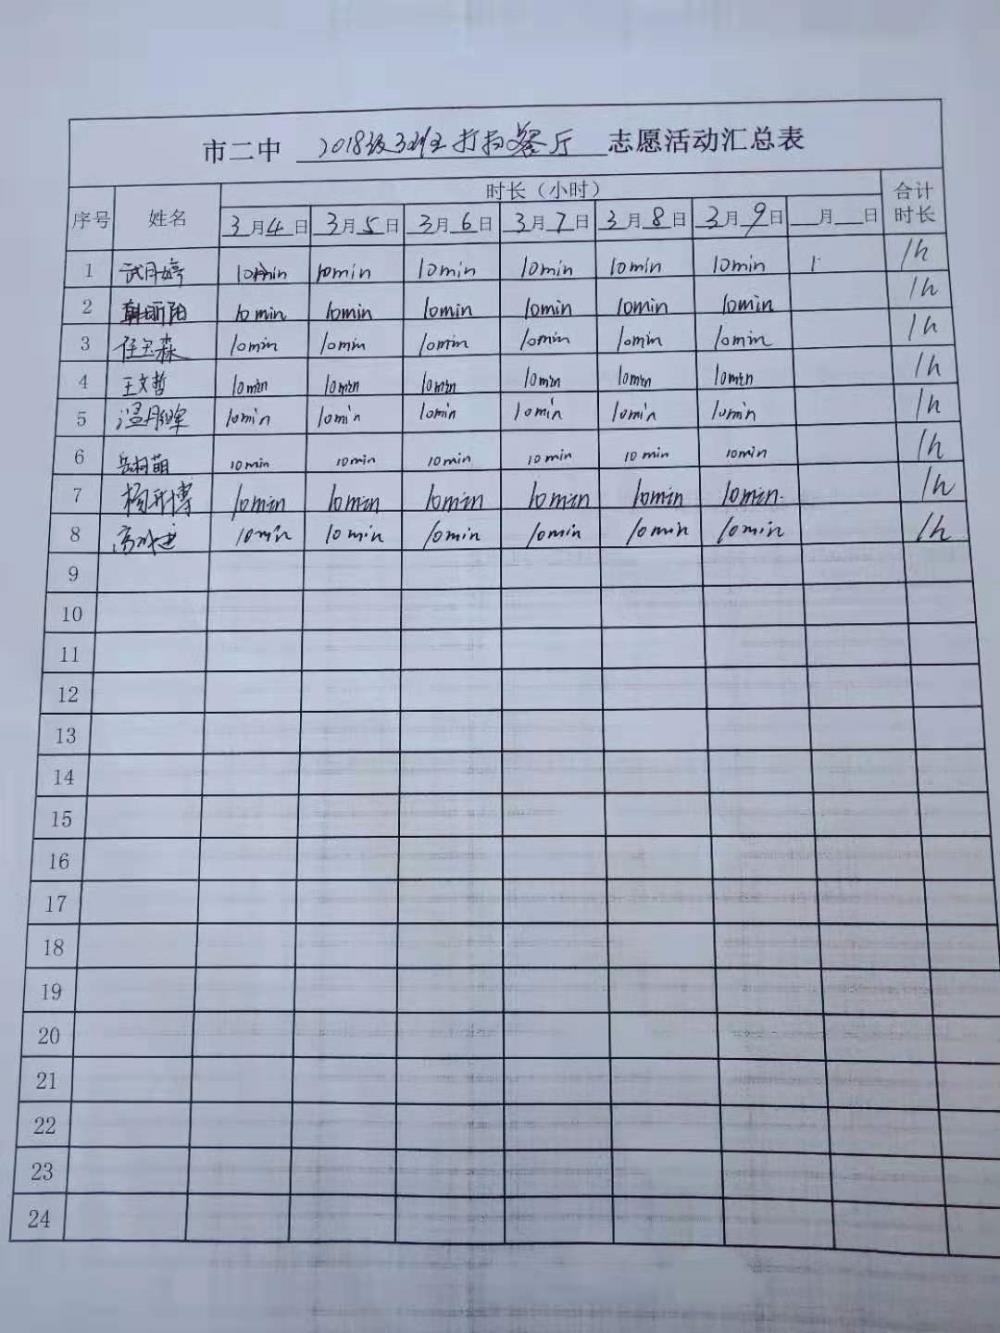 市二中 2018级3班打扫客厅 志愿活动汇总表
序号 姓名 时长（小时） 合计时长
3月4日 3月5日 3月6日 3月7日 3月8日 3月9日 月 日
1 武丹婷 10min 10min 10min 10min 10min 10min 1h
2 韩昕阳 10min 10min 10min 10min 10min 10min 1h
3 任玉森 10min 10min 10min 10min 10min 10min 1h
4 王文哲 10min 10min 10min 10min 10min 10min 1h
5 10min 10min 10min 10min 10min 10min 1h
6 岳柯萌 10min 10min 10min 10min 10min 10min 1h
7 10min 10min 10min 10min 10min 10min 1h
8 10min 10min 10min 10min 10min 10min 1h
9
10
11
12
13
14
15
16
17
18
19
20
21
22
23
24